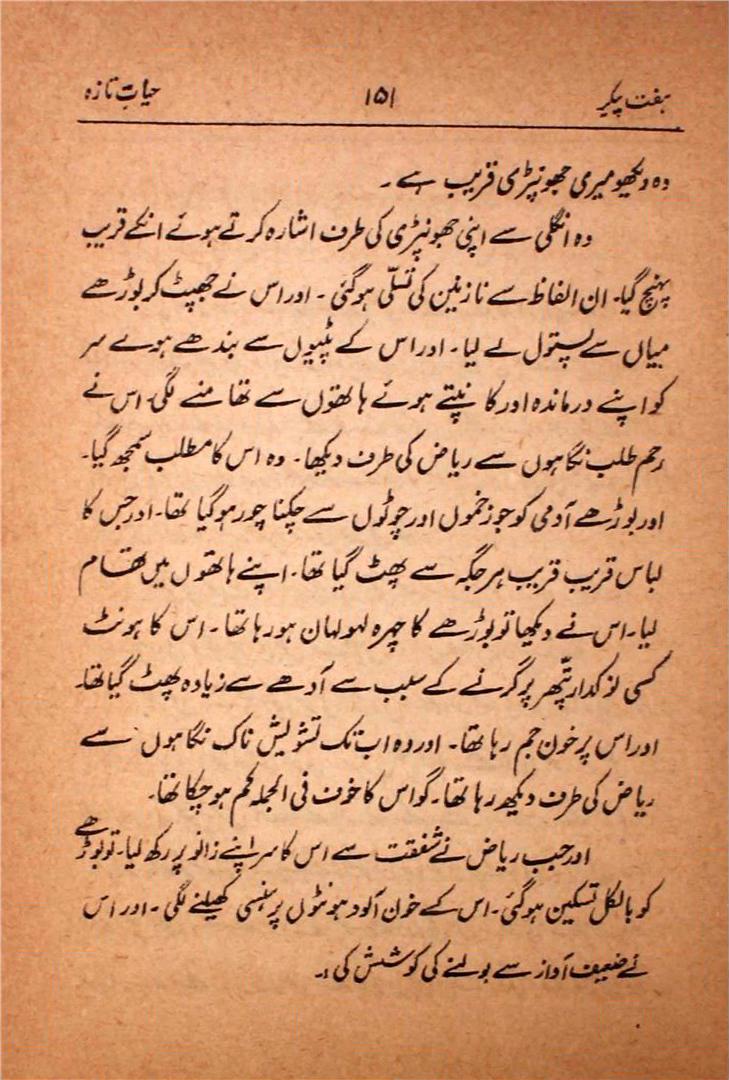 ہفت پیکر ۱۵۱ حیاتِ تازہ
وہ دیکھو میری جھونپڑی قریب ہے۔
وہ انگلی سے اپنی جھونپڑی کی طرف اشارہ کرتے ہوئے انکے قریب
پہنچ گیا۔ ان الفاظ سے نازنین کی تسلّی ہوگئی۔ اور اس نے جھپٹ کر بوڑھے
میاں سے پستول لے لیا۔ اور اس کے پٹیوں سے بندھے ہوے سر
کو اپنے درماندہ اور کانپتے ہوئے ہاتھوں سے تھامنے لگی۔ اس نے
رحم طلب نگاہوں سے ریاض کی طرف دیکھا۔ وہ اس کا مطلب سمجھ گیا۔
اور بوڑھے آدمی کو جو زخموں اور چوٹوں سے چکنا چور ہوگیا تھا۔ اور جس کا
لباس قریب قریب ہر جگہ سے پھٹ گیا تھا۔ اپنے ہاتھوں میں تھام
لیا۔ اس نے دیکھا تو بوڑھے کا چہرہ لہولہان ہو رہا تھا۔ اس کا ہونٹ
کسی نوکدار پتّھر پر گرنے کے سبب سے آدھے سے زیادہ پھٹ گیا تھا۔
اور اس پر خون جم رہا تھا۔ اور وہ اب تک تشویش ناک نگاہوں سے
ریاض کی طرف دیکھ رہا تھا۔ گو اس کا خوف فی الجملہ کم ہو چکا تھا۔
اور جب ریاض نے شفقت سے اس کا سر اپنے زانو پر رکھ لیا۔ تو بوڑھے
کو بالکل تسکین ہوگئی۔ اس کے خون آلود ہونٹوں پر ہنسی کھیلنے لگی۔ اور اس
نے ضعیف آواز سے بولنے کی کوشش کی:۔